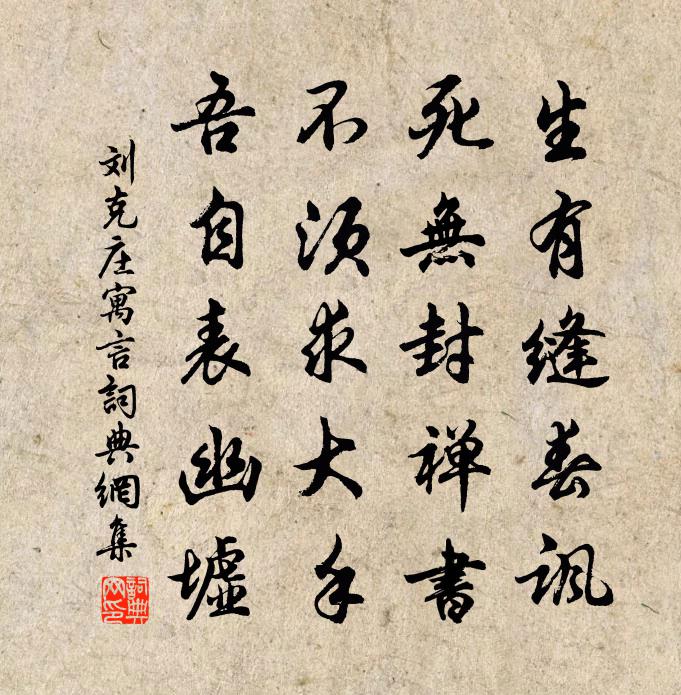 生有縫舂諷
死無封禪書
不須求大手
吾自表幽墟
刘克庄寓言詞典網集
詞典网印